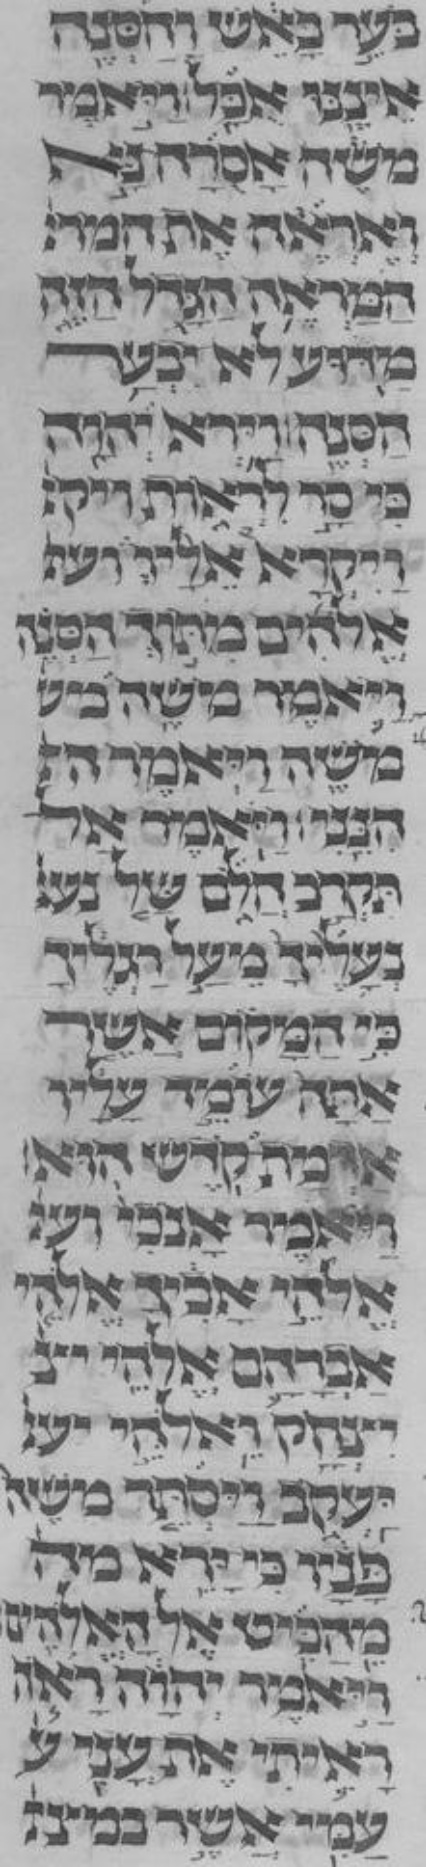 בער באש והסנה
איננו אכל ויאמר
משה אסרה נא
ואראה את המר
המראה הגדל הזה
מדוע לא יבער
הסנה וירא יהוה
כי סר לראות ויק
ויקרא אליו
אלהים מתוך הסנה
ויאמר משה מש
משה ויאמר הנ
הנני ויאמר אל
תקרב הלם של נע
נעליך מעל רגליך
כי המקום אשר
אתה עומד עליו
אדמת קדש הוא
ויאמר אנכי
אלהי אביך אלהי
אברהם אלהי יצ
יצחק ואלהי יע
יעקב ויסתר משה
פניו כי ירא מה
מהביט אל האלהים
ויאמר יהוה ראה
ראיתי את עני ע
עמי אשר במיצ